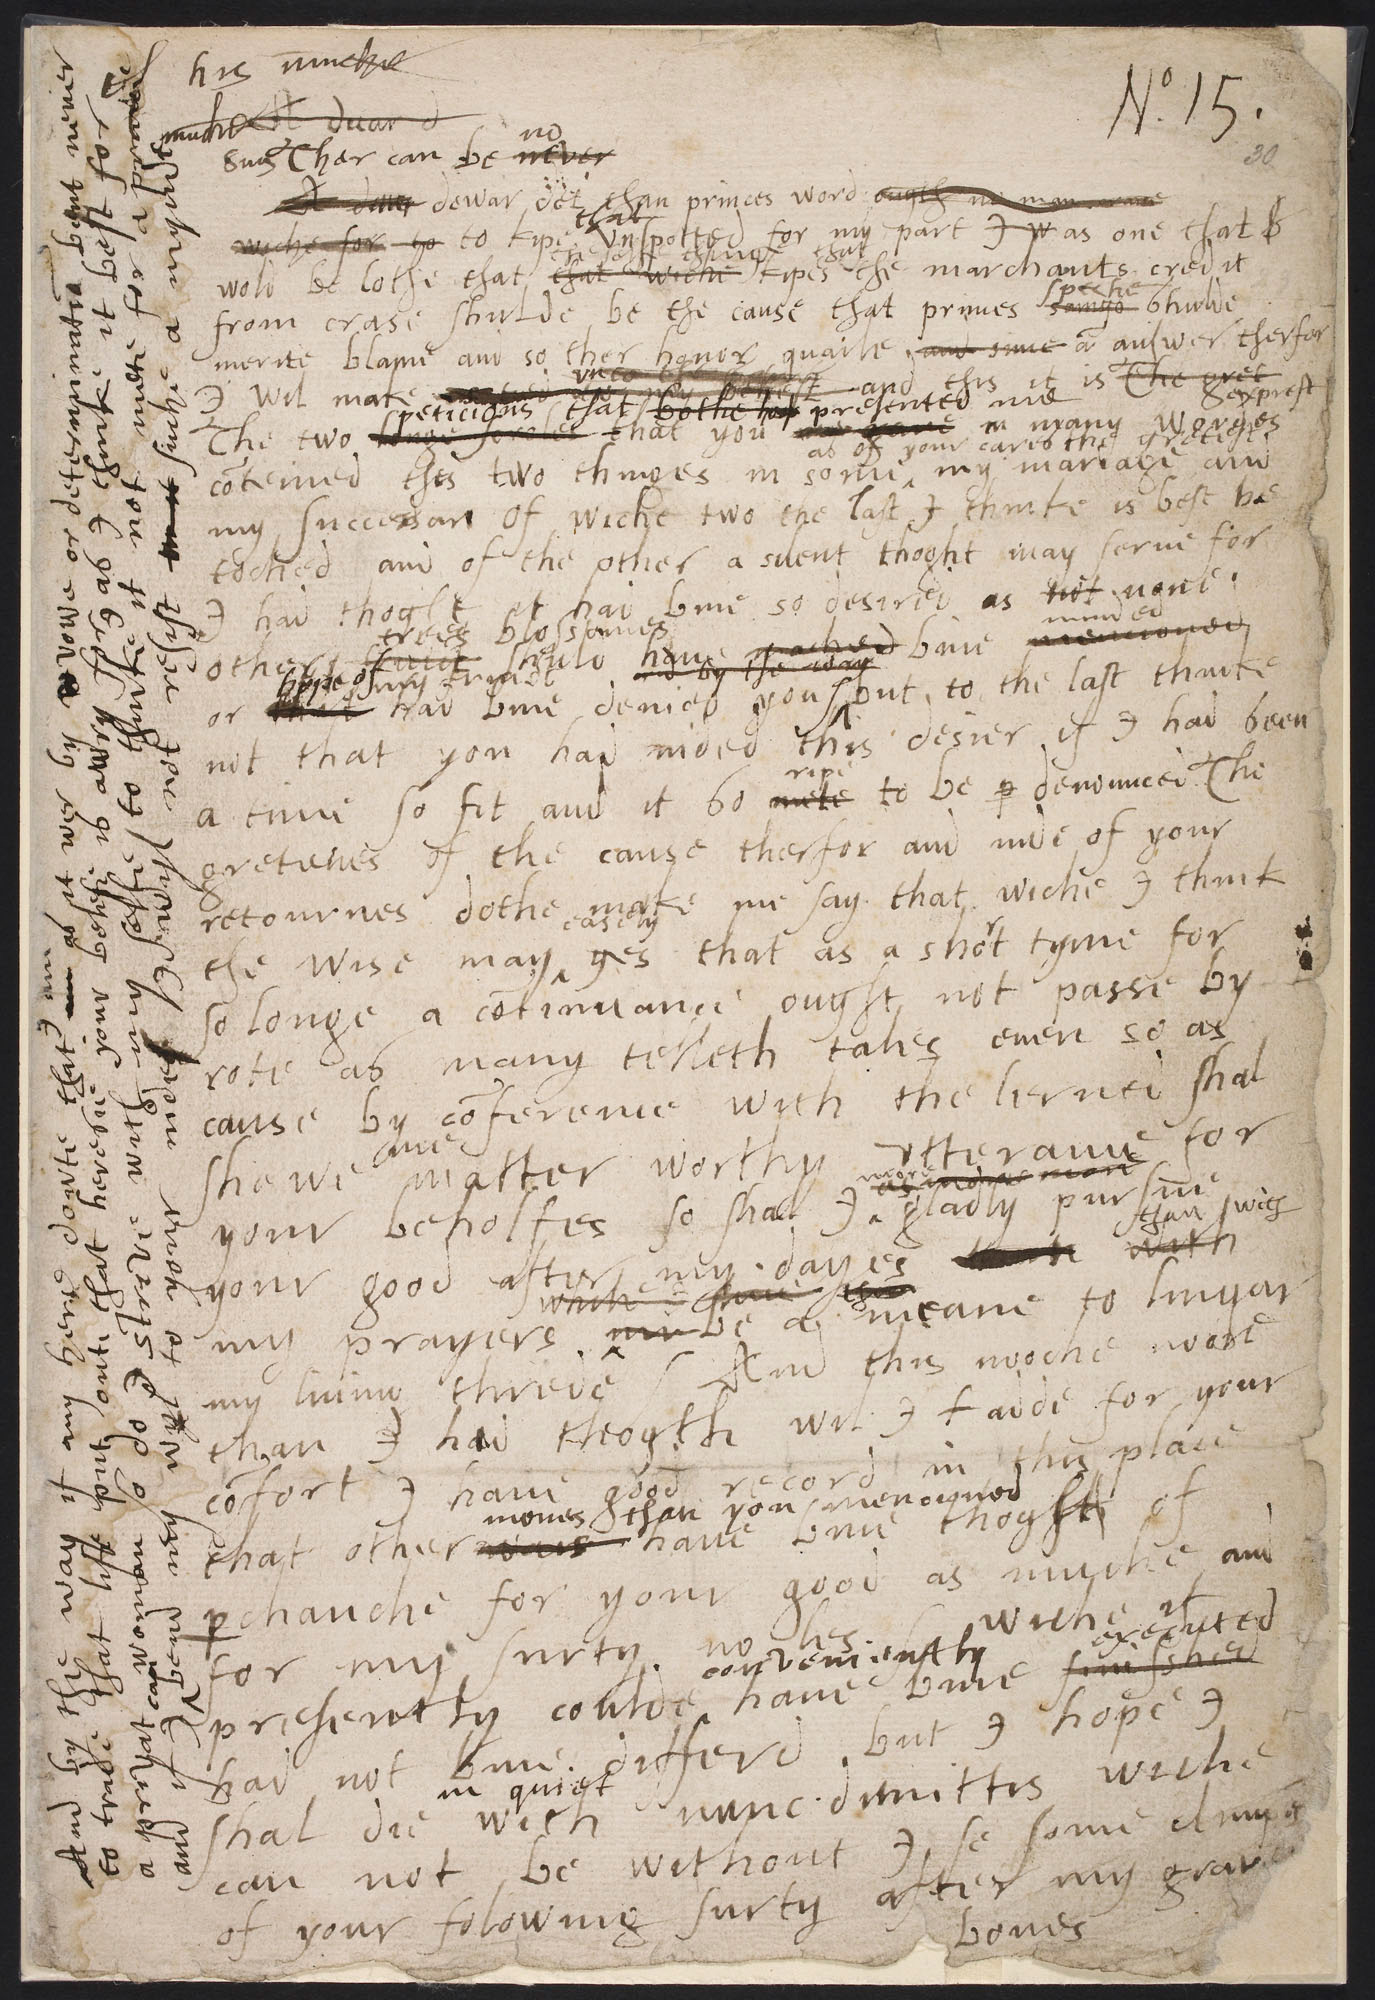 his muche
No. 15.
30
muche
Sins Ther can be no never
dewar det than princes word
wiche for to to kipe that vnspotted for my part I was one that
wold be lothe that the selfe thinge that wiche kipes the marchants credit
from crase shulde be the cause that princes speche shulde
merite blame and so ther honor quaile and sinc a answer therfor
I Wil make and this it is The gret
The two peticions that you presented me in many Wordes exprest
conteined thes two thinges in some as of your cares the gretest my mariage and
my successar of wiche two the last I thinke is best be
toched and of the other a silent thoght may serue for
I had thoght it had bine so desired as not none
other trees blossomes shuld have bine minded mencioned
or hope of my frute had bine denied you and by the way but to the last thinke
not that you had nided this desier if I had seen
a time so fit and it so ripe mete to be denounced The
gretenes of the cause therfor and nide of your
retournes dothe make me say that wiche I think
the wise may easely ges that as a short tyme for
so longe a continuance ought not passe by
rote as many telleth tales even so as
cause by conference with the lerned shal
shewe me matter worthy vtterance for
your behoffes so shal I more gladly pursue
your good after my dayes than with
my prayers be a meane to lingar
my living threde And this moche more
than I had thogth wil I adde for your
comfort I haue good record in this place
that other menes than you mencioned have bine thoght of
perchanche for your good as muche and
for my surty no les wiche if
presently coulde conveniently haue bine executed finisched
had not bine differd but I hope I
shal die in quiet with nunc dimittis wiche
can not be without I se some
of your folowing surty after my grave
bones
And by the way if any here doute that I am as it wer by vowe or determination bent never
to trade that life put out that heresie your belefe is awry for as I thinke it best for
a privat woman so do I strive with my selfe to thinke it not mete for a
and if I bend my to your nides resist suche a minde